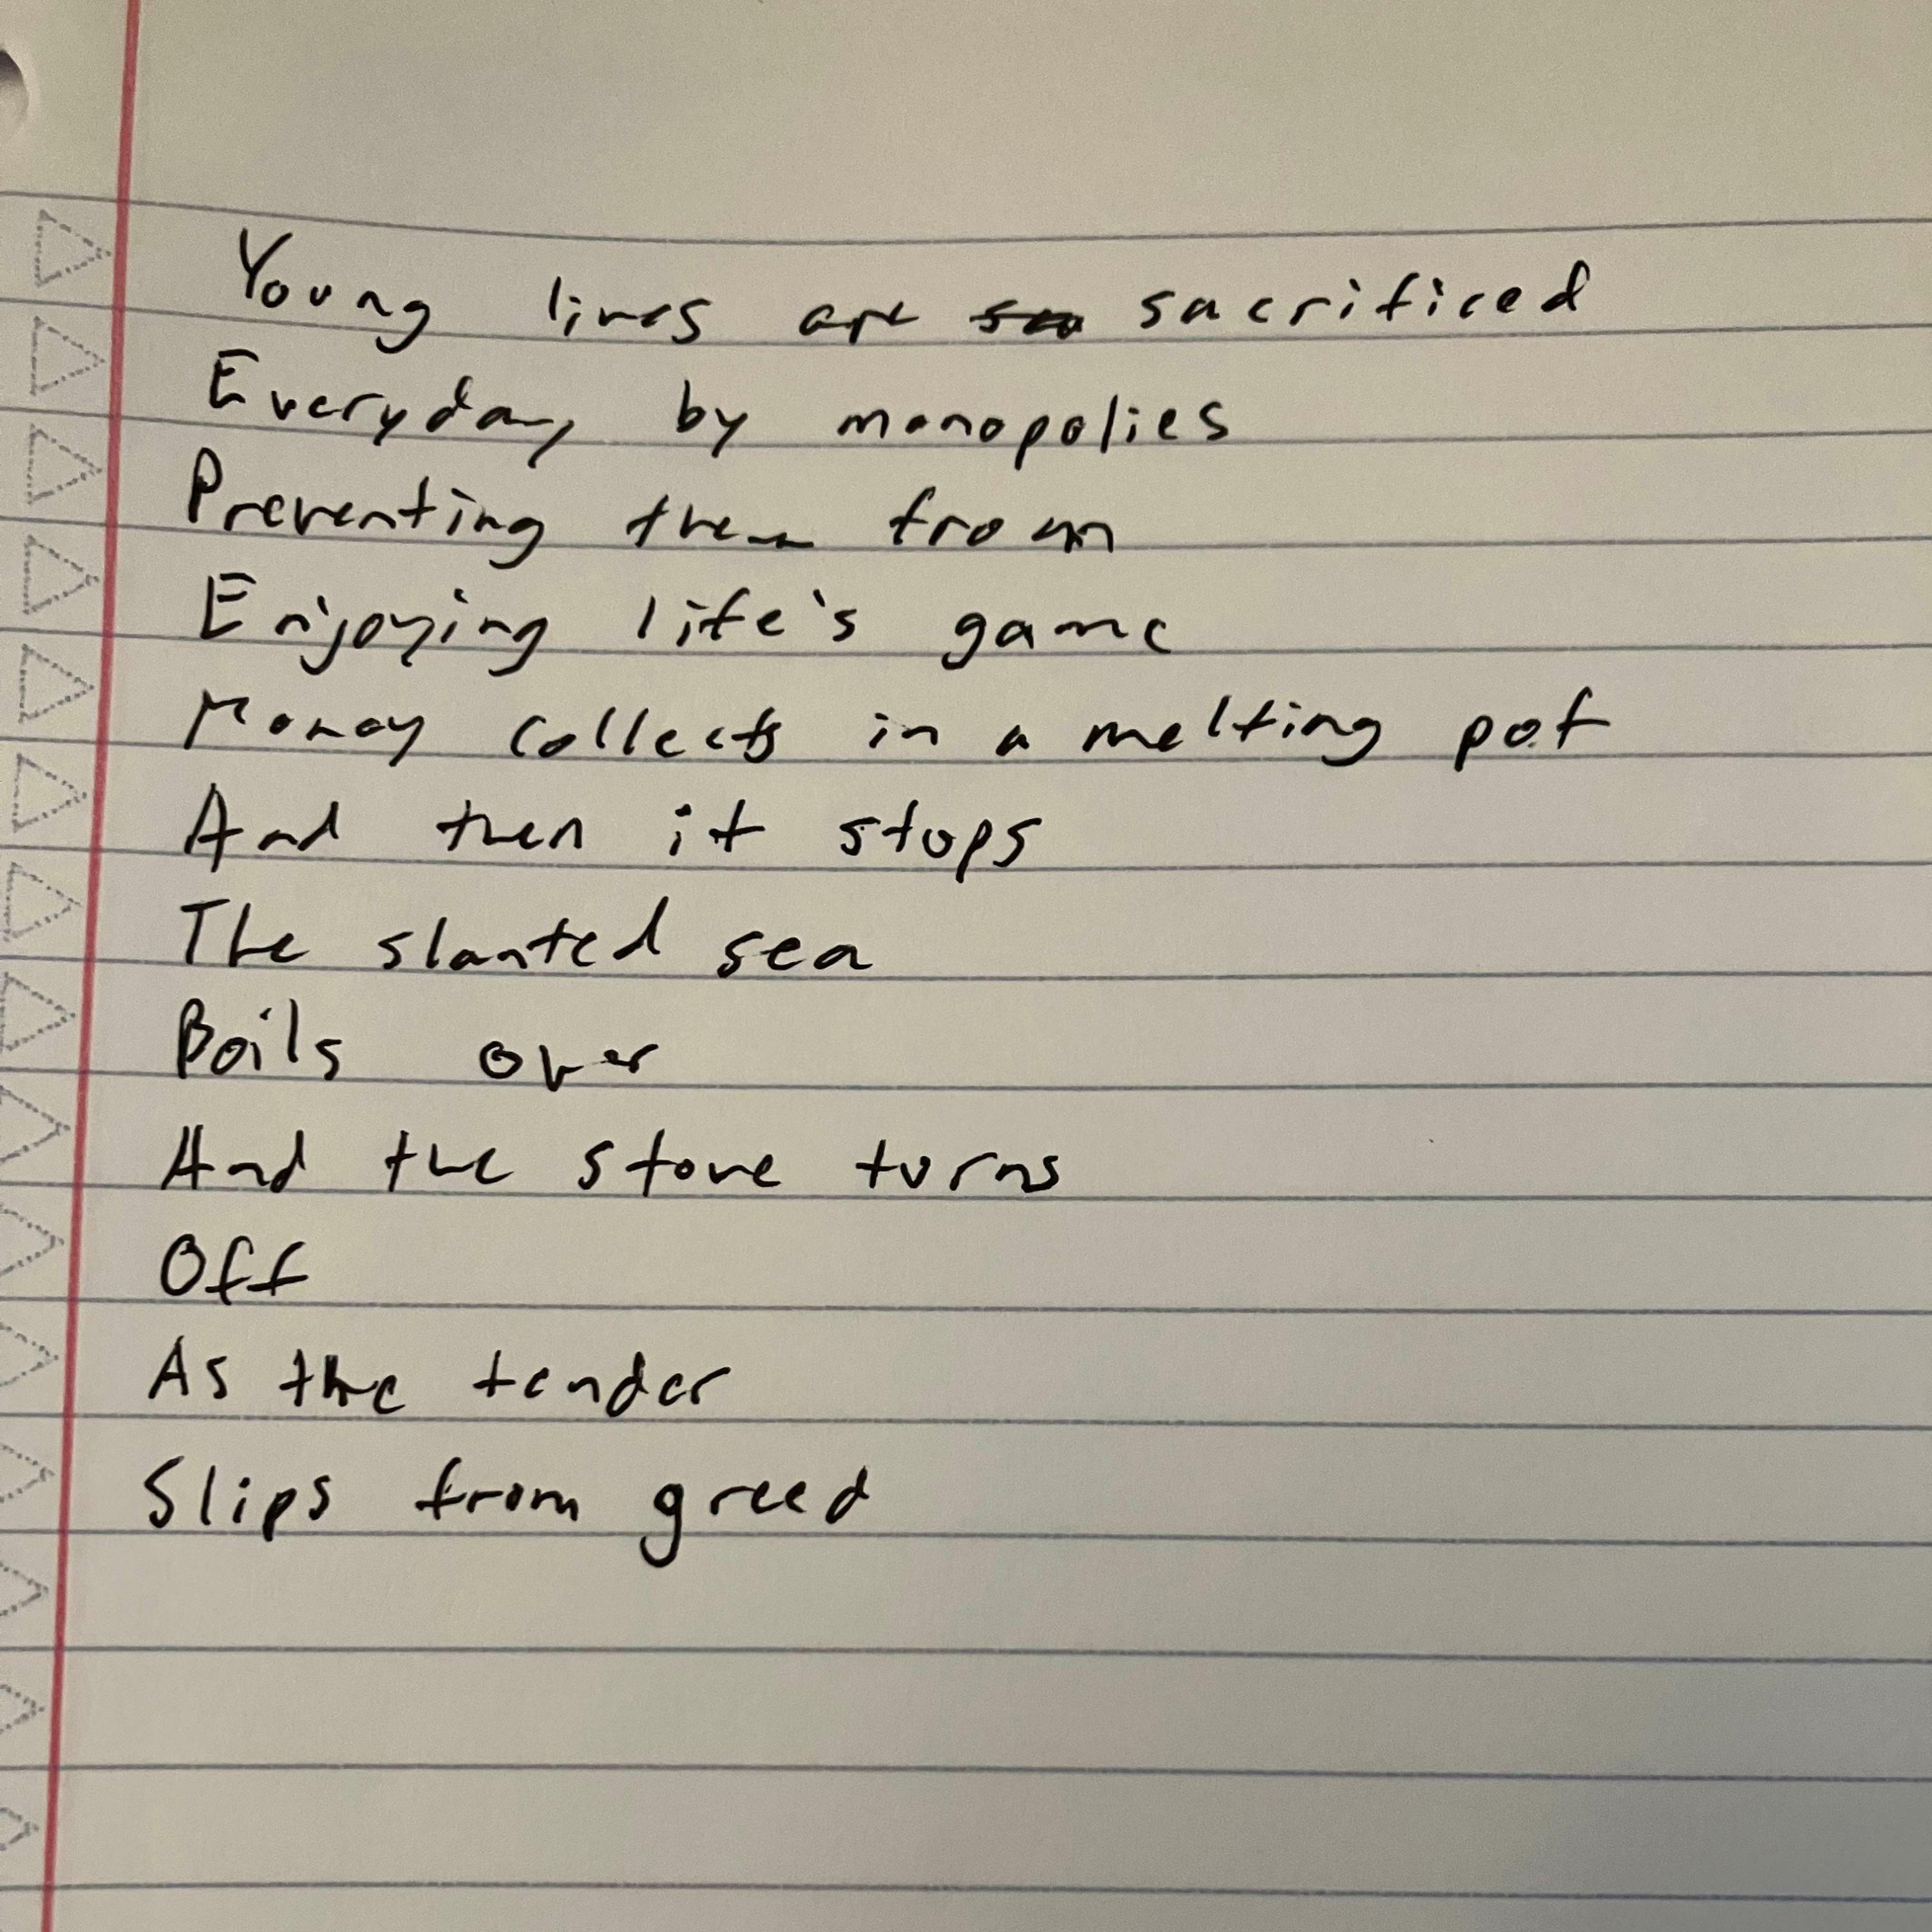 Young lives are sacrificed
Everyday by monopolies
Preventing them from
Enjoying life's game
Money collects in a melting pot
And then it stops
The slanted sea
Boils over
And the stove turns
Off
As the tender
Slips from greed